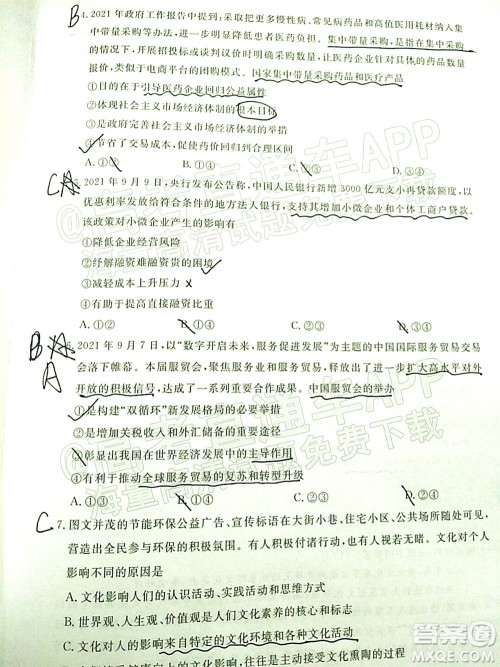 B 4. 2021 年政府工作报告中提到:采取把更多慢性病、常见病药品和高值医用耗材纳入集
中带量采购等办法,进一步明显降低患者医药负担。集中带量采购,是指在集中采购
的情况下,开展招投标或谈判议价时明确采购数量,让医药企业针对具体的药品数量
报价,类似于电商平台的团购模式。国家集中带量采购药品和医疗产品
①目的在于引导医药企业回归公益属性
②体现社会主义市场经济体制的根本目标
③是政府完善社会主义市场经济体制的举措
④节省了交易成本,促使药价回归到合理区间
A.①② B.①④ C.②③ D.③④
C A 5. 2021 年 9 月 9 日,央行发布公告称,中国人民银行新增 3000 亿元支小再贷款额度,以
优惠利率发放给符合条件的地方法人银行,支持其增加小微企业和个体工商户贷款。
该政策对小微企业产生的影响有
①降低企业经营风险
②纾解融资难融资贵的困境
③减轻成本上升压力
④有助于提高直接融资比重
A.①② B.①④ C.②③ D.③④
B A 6. 2021 年 9 月 7 日,以“数字开启未来,服务促进发展”为主题的中国国际服务贸易交易
A 会落下帷幕。本届服贸会,聚焦服务业和服务贸易,释放出了进一步扩大高水平对外
开放的积极信号,达成了一系列丰硕成果。中国服贸会的举办
①是构建“双循环”新发展格局的必要举措
②成为增加我国外贸收入和外汇储备的重要途径
③彰显出我国在世界服务贸易发展中的主导作用
④有利于推动全球服务贸易的复苏和转型升级
A.①② B.①④ C.②③ D.③④
C 7. 图文并茂的节能环保公益广告、宣传标语在大街小巷、住宅小区、公共场所随处可见,
营造出全民参与环保的积极氛围。有人积极付诸行动,也有人视若无睹。文化对人
影响不同的原因是
A. 文化影响人们的认识活动、实践活动和思维方式
B. 世界观、人生观、价值观是人们文化素养的核心和标志
C. 文化对人的影响来自特定的文化环境和各种文化活动